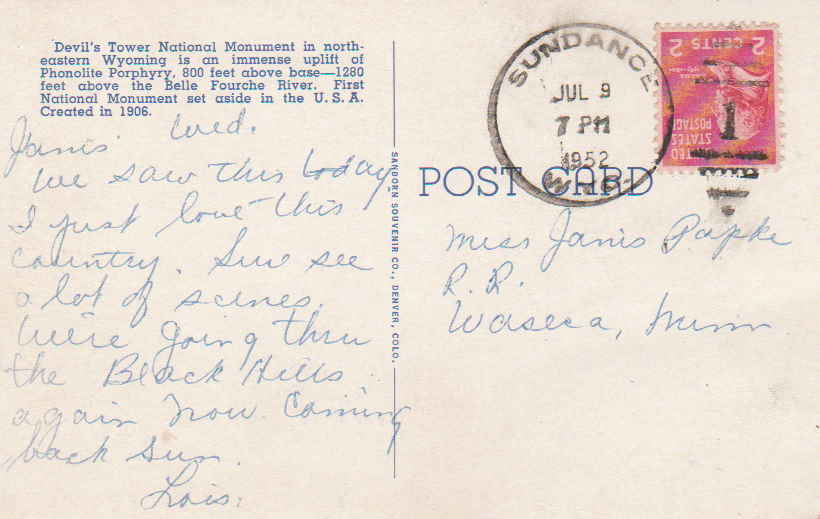 Devil's Tower National Monument in north-
eastern Wyoming is an immense uplift of
Phonolite Porphyry, 800 feet above base—1280
feet above the Belle Fourche River. First
National Monument set aside in the U. S. A.
Created in 1906.
Wed.
Janis
We saw this today
I just love this
country. Sure see
a lot of scenes.
We're going thru
the Black Hills
again now. Coming
back Sun.
Lois.
SANBORN SOUVENIR CO., DENVER, COLO.
POST CARD
SUNDANCE
JUL 9
7 PM
1952
WYO.
1
UNITED
STATES
POSTAGE
2 CENTS 2
Miss Janis Papke
R.R.
Waseca, Minn